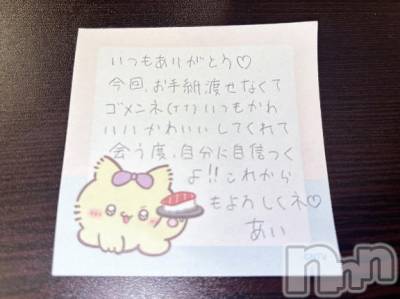 いつもありがとう♡
今回、お手紙渡せなくて
ゴメンネ(TT)いつもかわ
いいかわいいしてくれて
会う度、自分に自信つく
よ!!これから
もよろしくネ♡
あい